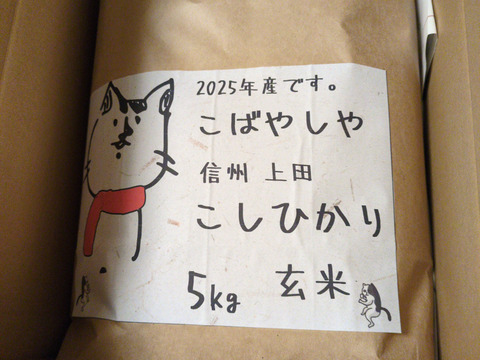 2025年産です。
こばやしや
信州 上田
こしひかり
5kg 玄米